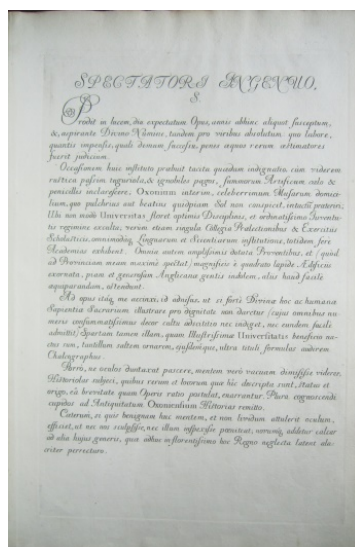 SPECTATORI INGENUO,
S.
Prodit in lucem, diu expectatum Opus, annis abhinc aliquot susceptum,
&, aspirante Divino Numine, tandem pro viribus absolutum quo labore,
quantis impensis, quali demum successu, penes æquos rerum æstimatores
fuerit judicium.
Occasionem huic instituto præbuit iusta quædam indignatio, cum viderem
rustica passim tuguriola, & ignobiles pagos, summorum Artificum cælo &
penicillis inclarescere; Oxoniam interim, celeberrimum Musarum domici-
lium, quo pulchrius aut beatius quidpiam Sol non conspicit, intactū præteriri.
Ubi non modò Universitas floret optimis Disciplinis, et ordinatissimo Iuventu-
tis regimine exculta; verum etiam singula Collegia Prælectionibus & Exercitiis
Scholasticis, omnimodāq Linguarum et Scientiarum institutione, totidem ferè
Academias exhibent. Omnia autem amplissimis dotata Proventibus, et (quod
ad Provinciam meam maximè spectat) magnificis è quadrato lapide Ædificiis
exornata, piam et generosam Anglicanæ gentis indolem, alias haud facilè
æquiparandam, ostendunt.
Ad opus itáq me accinxi, id adnisus, ut si fortè Divinæ hoc ac humanæ
Sapientiæ Sacrarium illustrare pro dignitate non daretur (cujus omnibus nu-
meris consummatissimus decor cultu adscititio nec indiget, nec eundem facilè
admittit) Spartam tamen illam, quam Illustrissimæ Universitatis beneficio na-
ctus sum, tantillum saltem ornarem, ultra tituli formulas auderem
Chalcographus.
Porro, ne oculos duntaxat pascerem, mentem verò vacuam dimississe viderer,
Historiolas subjeci, quibus rerum et locorum quæ hîc descripta sunt, status et
origo, eâ brevitate quam Operis ratio postulat, enarrantur. Plura cognoscendi
cupidos ad Antiquitatum Oxoniensium Historias remitto.
Cæterum, si quis benignam huic mentem, et non lividum attulerit oculum,
efficiet, ut nec me sculpsisse, nec illum inspexisse pœniteat, calcar
ad alia hujus generis, quæ adhuc in florentissimo hoc Regno neglecta latent ala-
criter perrecturo.